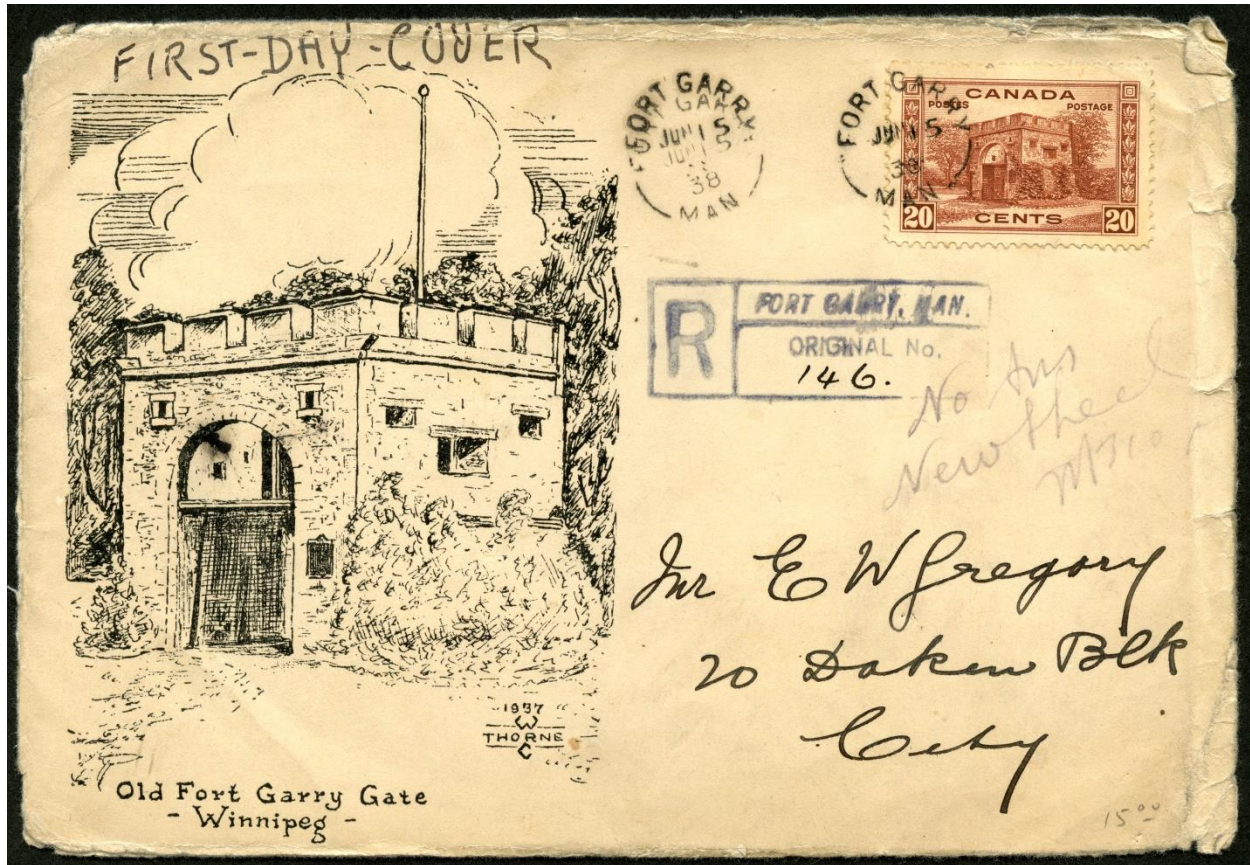 FIRST-DAY-COVER
FORT GARRY
GAR
JUN 15
JUN 15
38
MAN
FORT GARRY
JUN 15
38
MAN
CANADA
POSTES POSTAGE
20 CENTS 20
R
FORT GARRY, MAN.
ORIGINAL No.
146.
No Ans
New
Mr E W Gregory
20 Daken Blk
City
1937
W
THORNE
C
Old Fort Garry Gate
- Winnipeg -
15 00